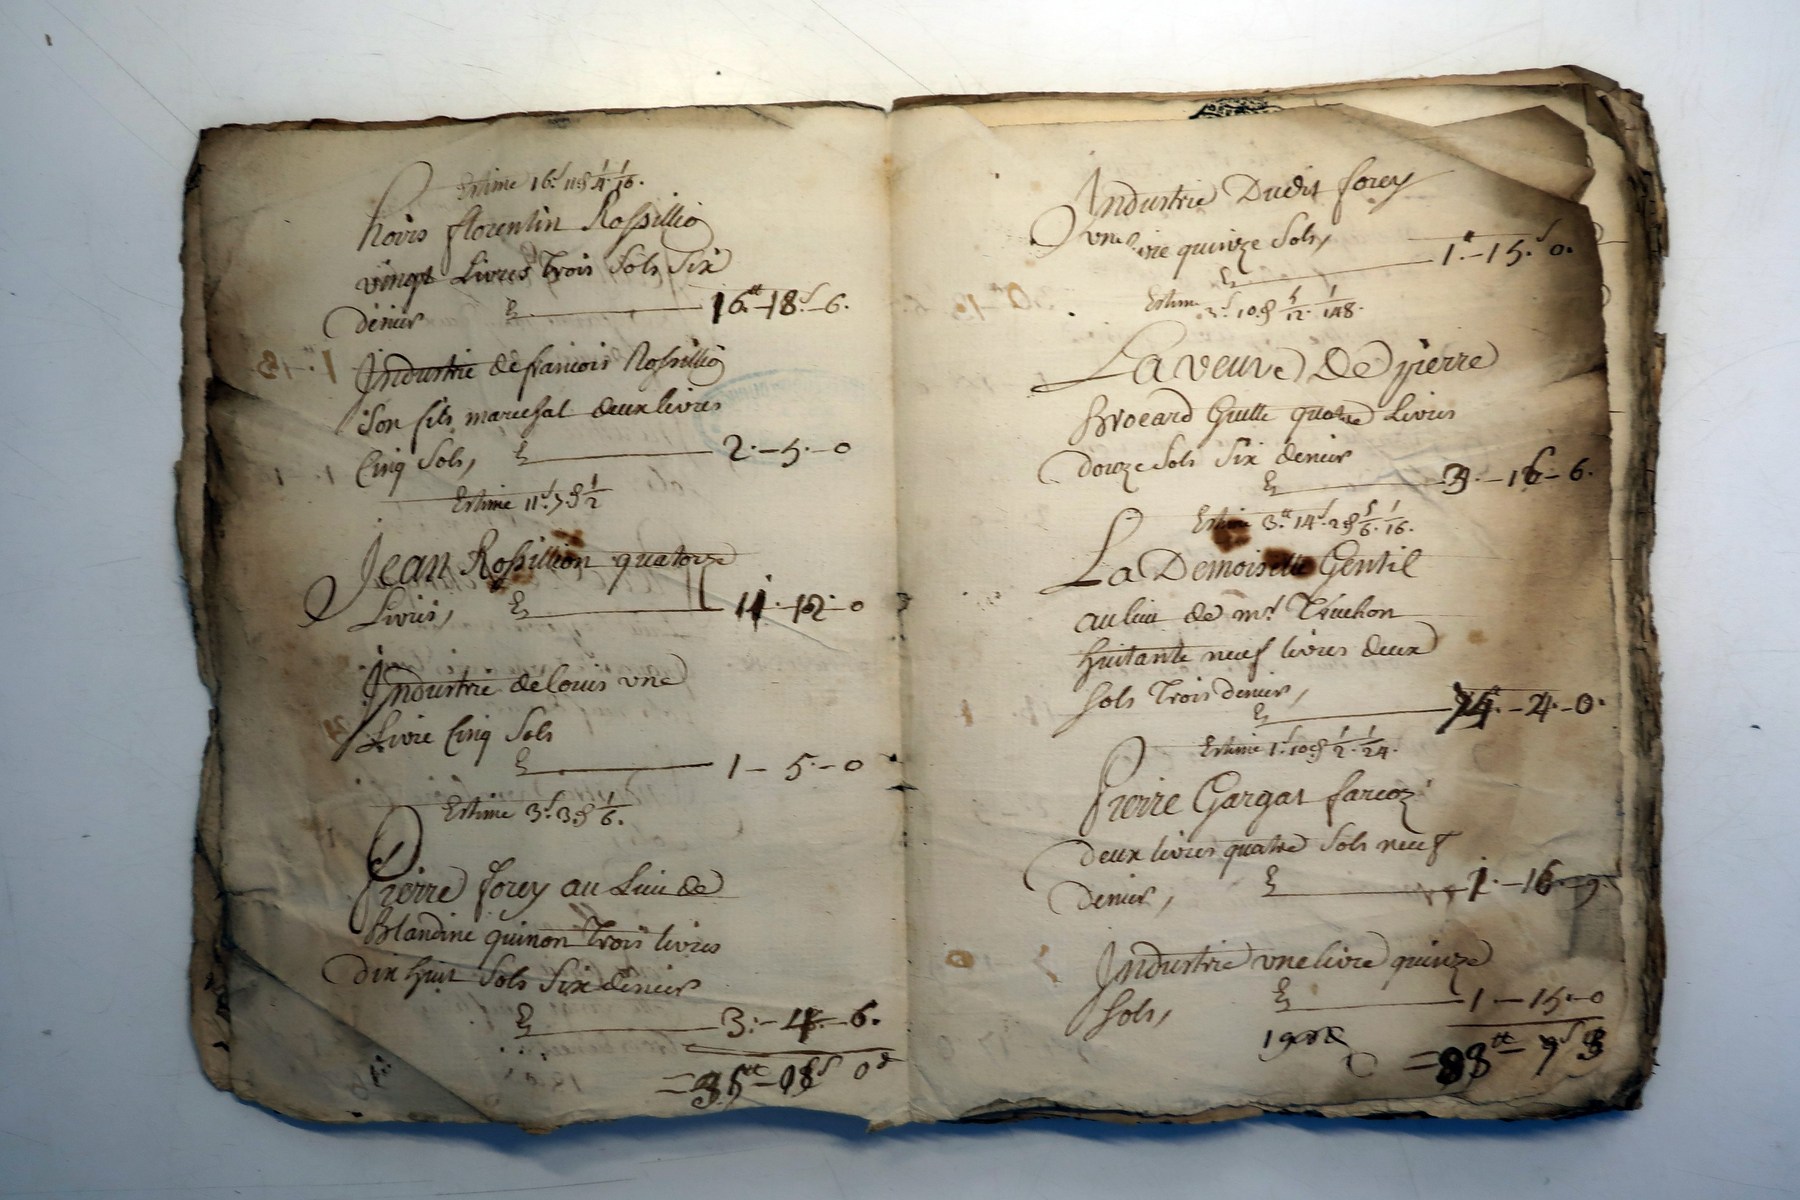 Estime 16.s 11.d 1/4. 1/16.
hoirs florentin Rossillio
vingt Livres Trois Sols Six
denier 16.tt - 18.s - 6.
Industrie de francois Rossillio
Son fils marechal deux livres
Cinq Sols, 2. - 5. - 0
Estime 11.s 7.d 1/2
Jean Rossillion quatorze
Livres, 11 - 12 - 0
Industrie de Louis une
Livre Cinq Sols
1 - 5. - 0
Estime 3.s 3.d 1/6.
Pierre forey au Lieu de
Blandine quinon Trois livres
Dix huit Sols Six denier
3. - 4. - 6.
= 35.tt - 08.s 0 d
Industrie Dudit forey
une quinze Sols,
1.tt - 15.s 0.
Estime 3.s 10.d 5/12. 1/148.
La veuve De pierre
Brocard Guille quatre Livres
douze Sols Six denier
3. - 16 - 6.
Estime 3.tt 14.s 2.d 5/6. 1/16.
La Demoiselle Gentil
au lieu de m.r Truchon
huitante neuf livres deux
Sols Trois denier,
74.tt - 4. - 0.
Estime 1.s 10.d 1/2. 1/24.
Pierre Gargat farcoz
deux livres quatre Sols neuf
denier, 1. - 16. - 9.
Industrie une livre quinze
Sols, 1 - 15. - 0
= 83.tt - 7.s 3